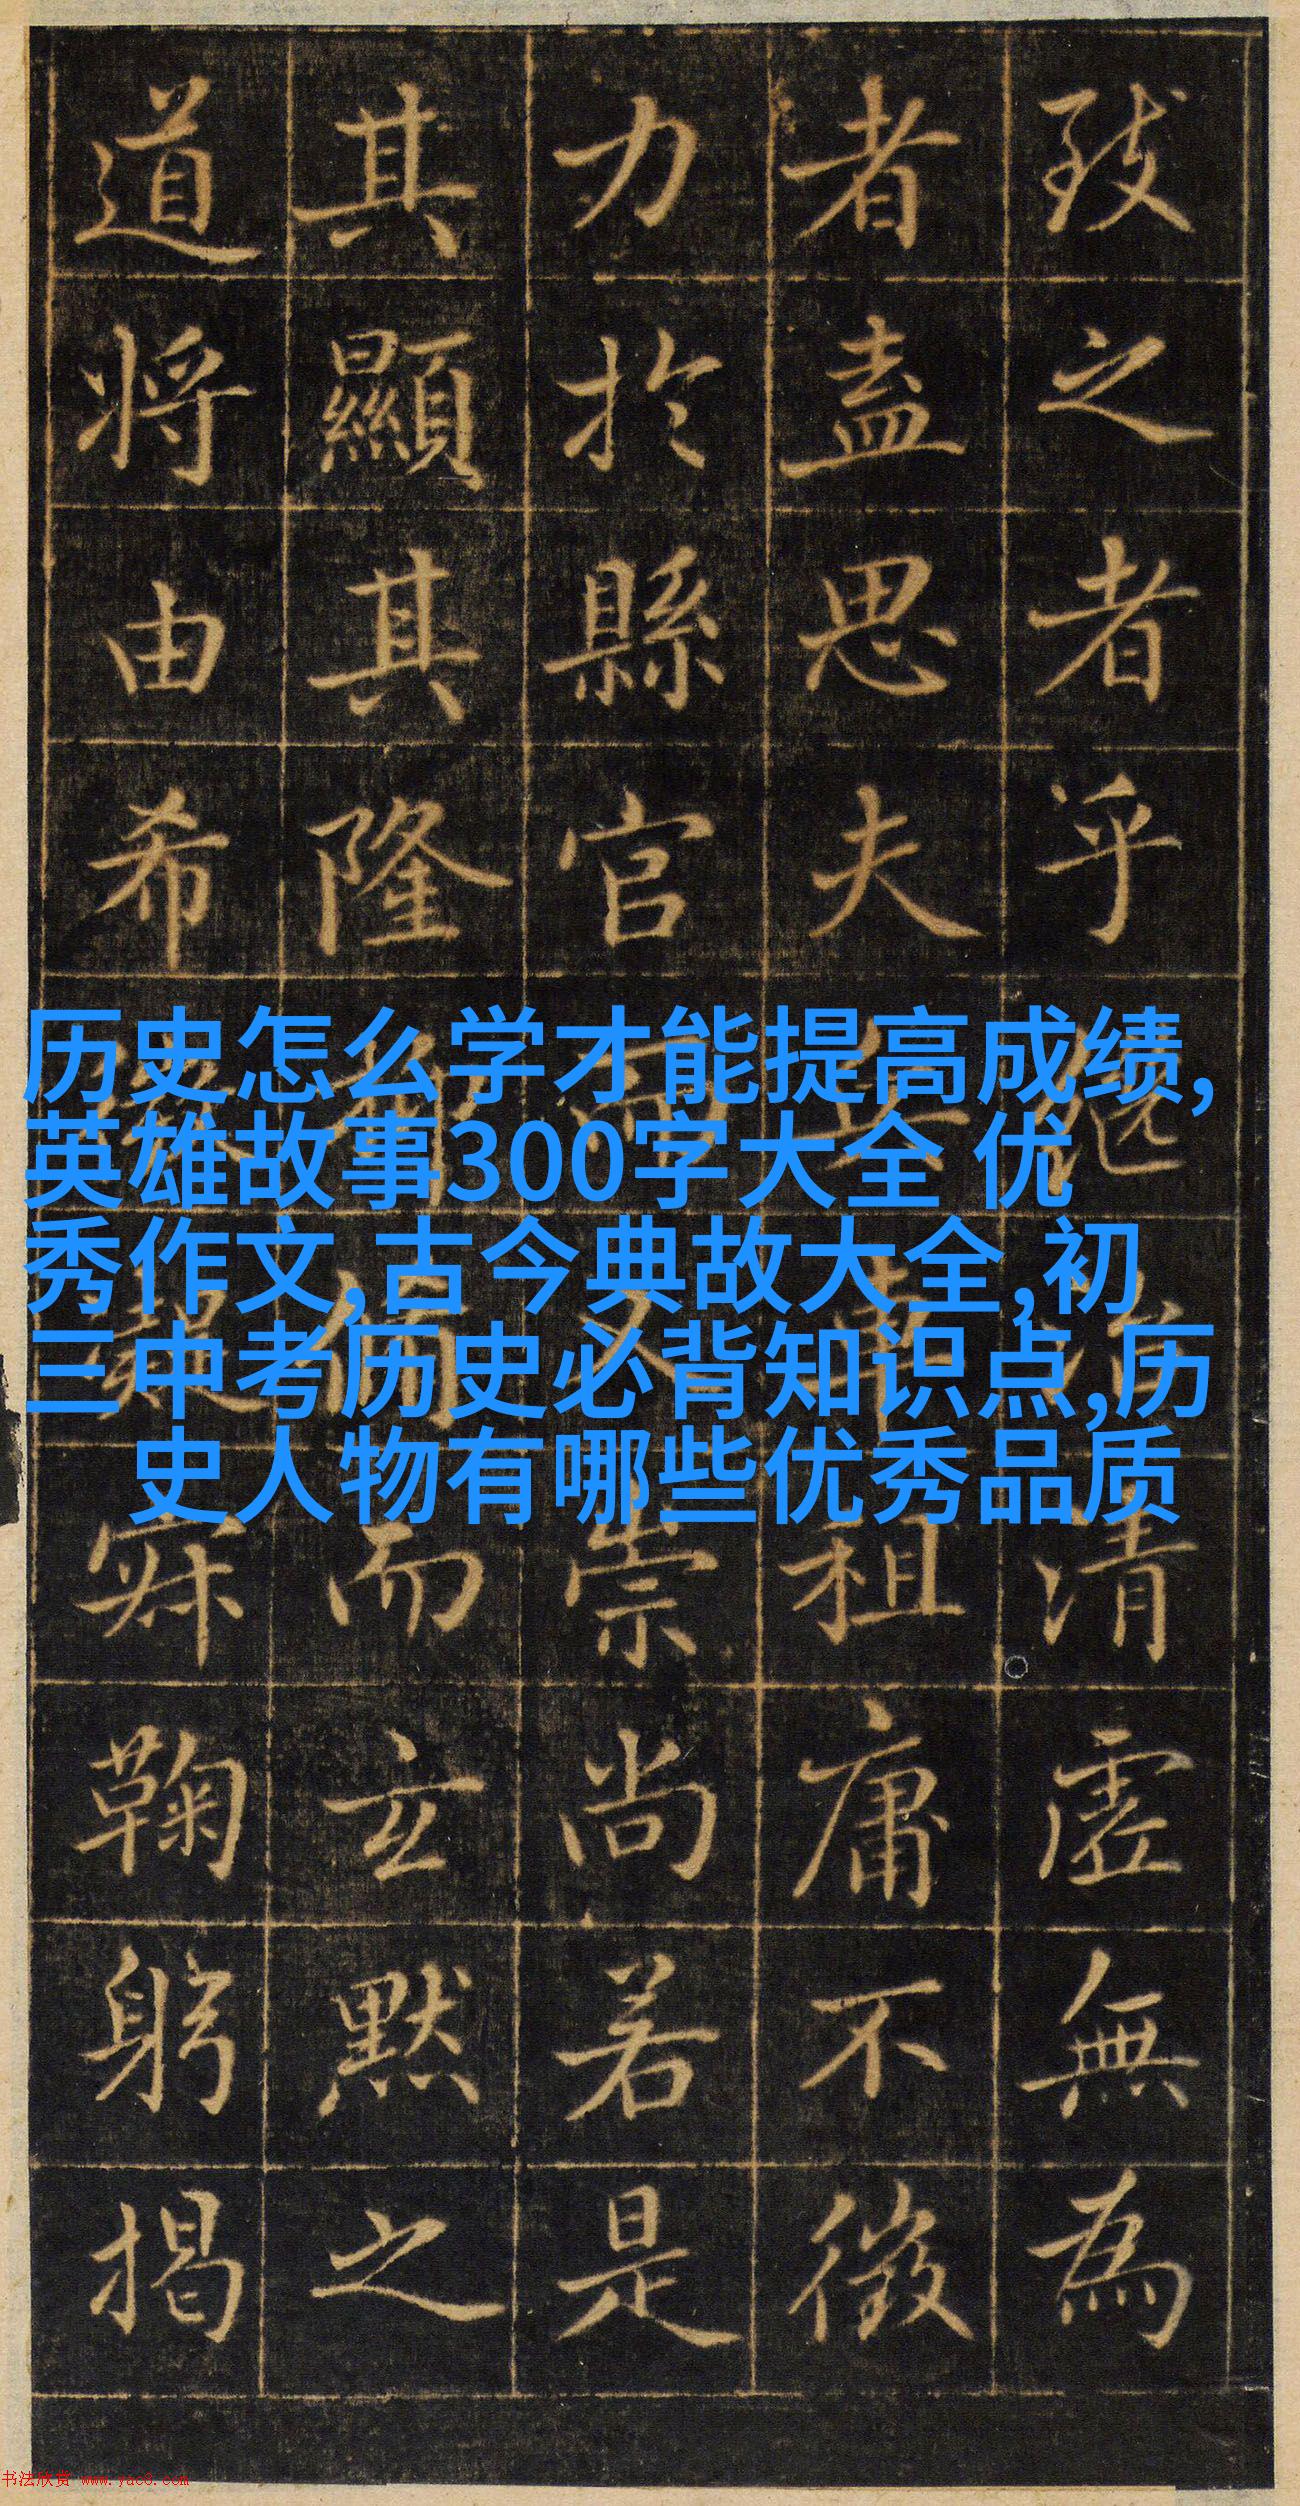 致之者乎清虛無為
者盍思夫租庸不徵
力於縣官而又崇尚若是
其顯其隆而玄默之
道將由希寂鞠躬揭
历史怎么学才能提高成绩,
英雄故事300字大全 优
秀作文,古今典故大全,初
三中考历史必背知识点,历
史人物有哪些优秀品质
书法欣赏 www.yac8.com